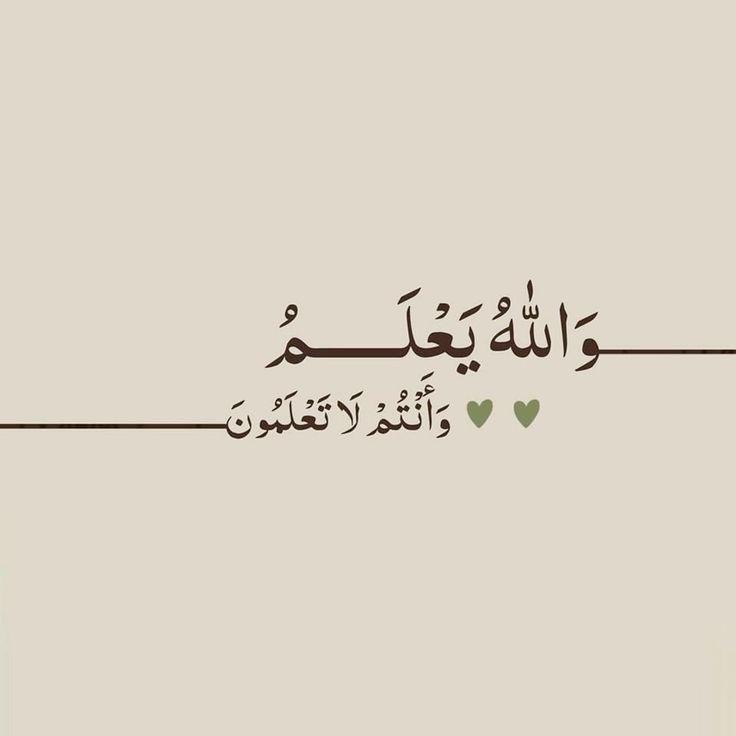 وَاللّٰهُ يَعْلَـــمُ
وَأَنْتُمْ لَا تَعْلَمُونَ